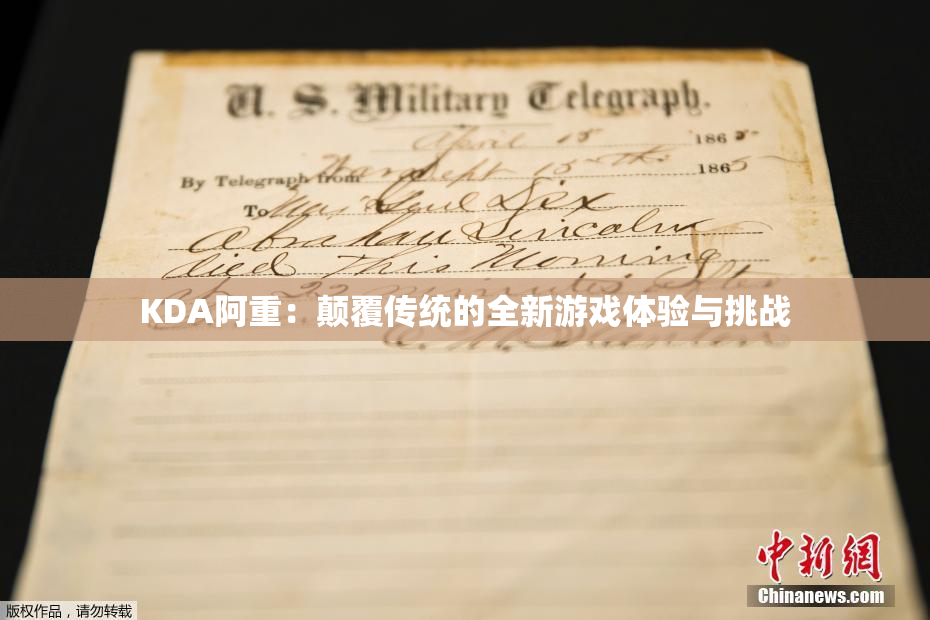 U. S. Military Telegraph.
April 15 1865
By Telegraph from War Dept 15th 1865
To Maj Genl Dix
Abraham Lincoln
died This Morning
at 22 minutes after
KDA阿重：颠覆传统的全新游戏体验与挑战
E. M. Stanton
中新網
Chinanews.com
版权作品，请勿转载